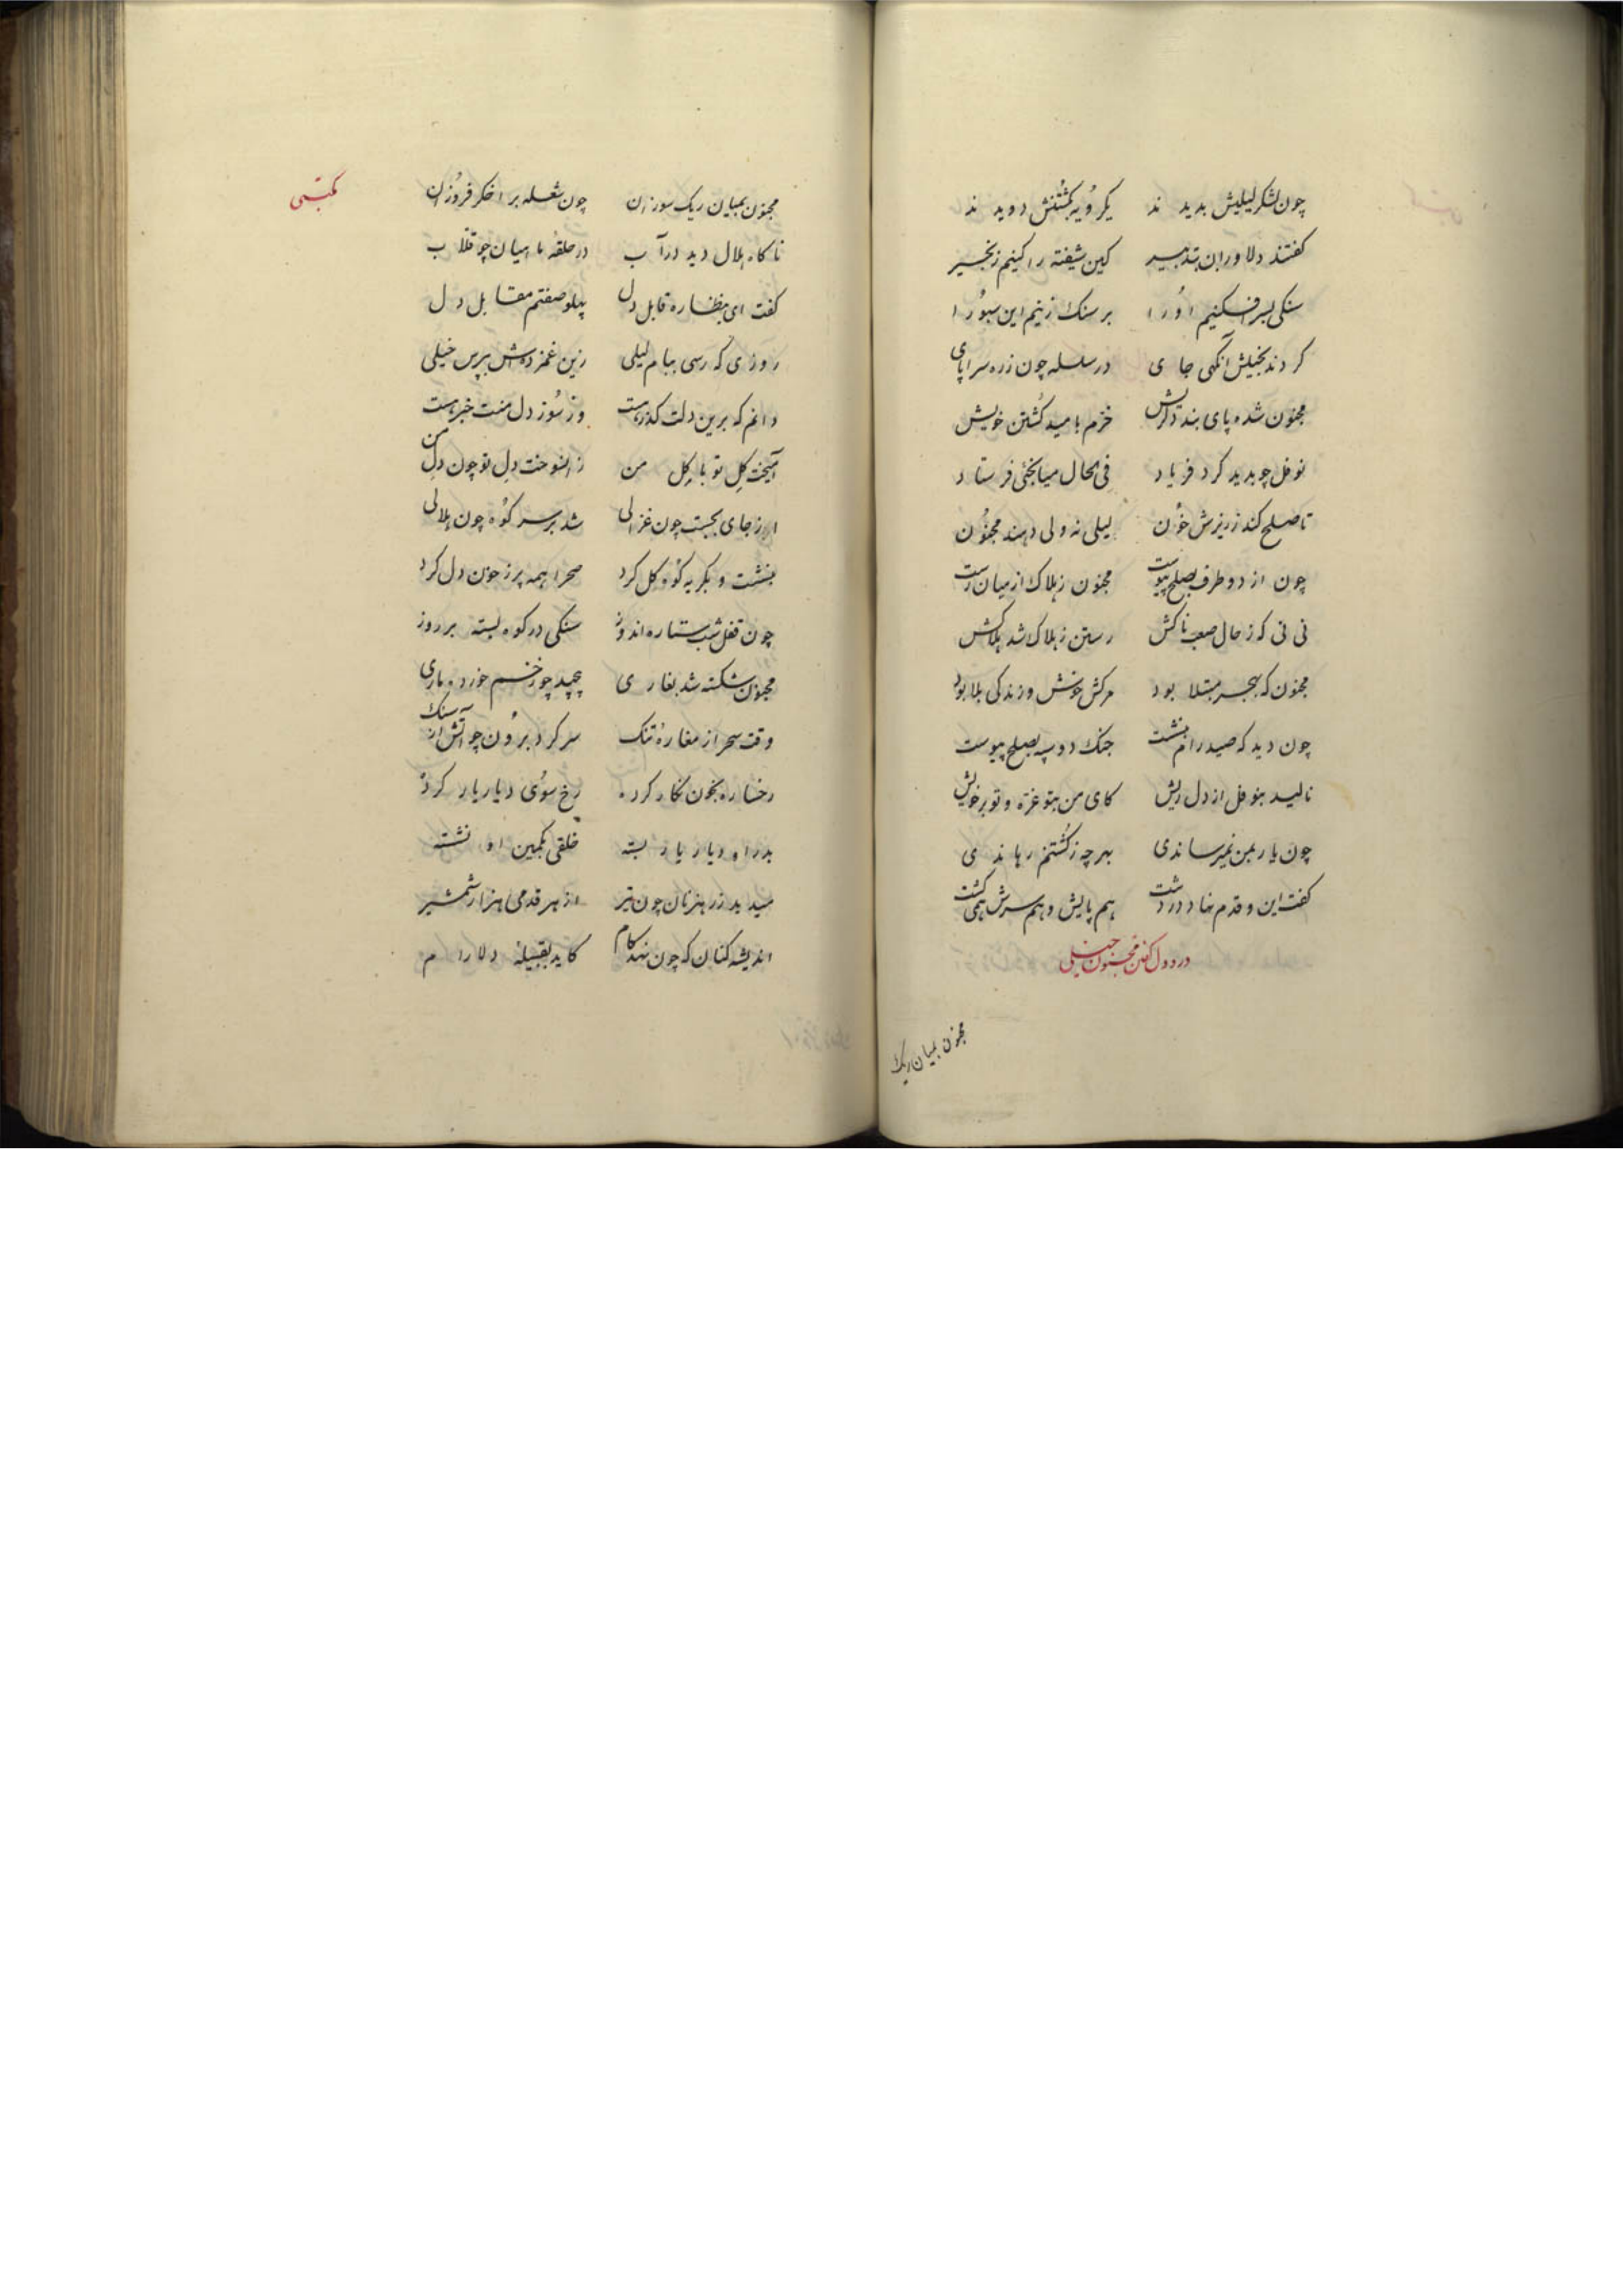 چون لشکر لیلیش بدیدند یکرویه بکشتنش دویدند
کفتند دلاوران بتدبیر کین شیفته را کنیم زنجیر
سنکی بسر افکنیم اورا بر سنک زنیم این سبورا
کردند بخیلش آنکهی جای در سلسله چون زره سراپای
مجنون شده پای بند خرم بامید کشتن خویش
نوفل چو بدید کرد فریاد فی الحال میانجئی فرستاد
تا صلح کند ز ریزش خون لیلی نه ولی دهند مجنون
چون از دو طرف بصلح پیوست مجنون ز هلاک از میان رست
نی نی که ز حال صعبناکش رستن ز هلاک شد هلاکش
مجنون که بهجر مبتلا بود مرکش خوش و زندکی بلا بود
چون دید که صید رام ننشست جنک دو سپه بصلح پیوست
نالید بنوفل از دل ریش کای من بتو غره و تو بر خویش
چون یار بمن نمیرساندی بهر چه ز کشتنم رهاندی
کفت این و قدم نهاد در دشت هم پایش و هم سرش همی کشت
درد دل کفتن مجنون
مجنون بمیان ریک
مکتبی
مجنون بمیان ریک سوزان چون شعله بر اخکر فروزان
ناکاه هلال دید در آب در حلقه ماهیان چو قلاب
کفت ای بنظاره قابل دل پهلو صفتم مقابل دل
روزی که رسی ببام لیلی زین غمزده اش بپرس خیلی
دانم که برین دلت کذر هست وز سوز دل منت خبر هست
آمیخت کل تو با کل من زان سوخت دل تو چون دل من
از جای بجست چون غزالی شد بر سر کوه چون هلالی
بنشست و بکریه کوه کل کرد صحرا همه پر ز خون دل کرد
چون قفل شب ستاره اندوز سنکی در کوه بسته بر روز
مجنون شکسته شد بغاری پیچید چو زخم خورده ماری
وقت سحر از مغاره تنک سر کرد برون چو آتش از سنک
رخساره بخون نکار کرده رخ سوی دیار یار کرده
بد راه دیار یار بسته خلقی بکمین او نشسته
میدید ز رهزنان چون تیر از هر قدمی هزار شمشیر
اندیشه کنان که چون نهد کام کاید بقبیله دلارام